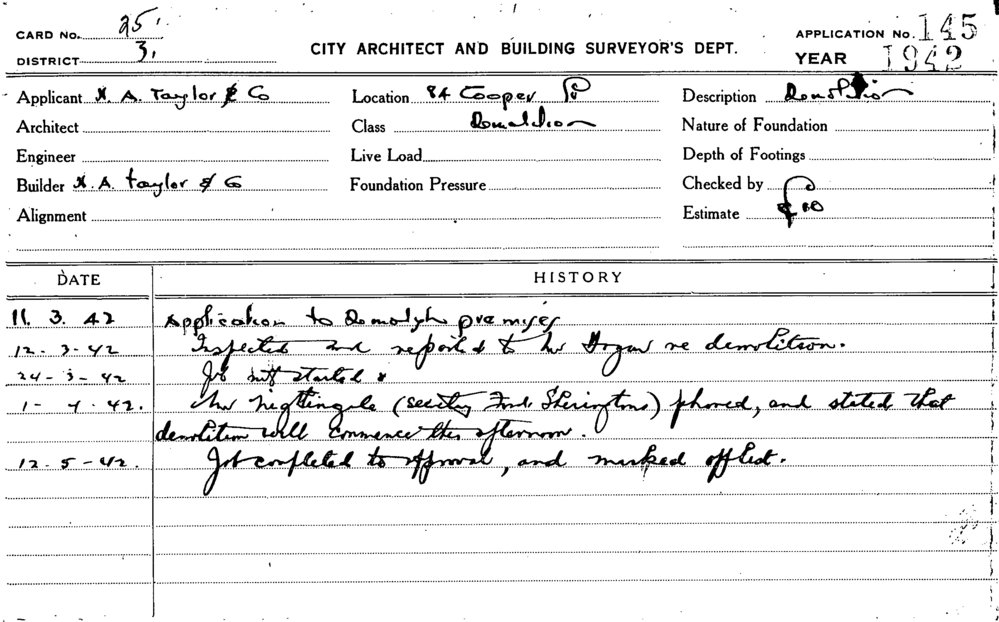 CARD No. 25.
DISTRICT 3.
CITY ARCHITECT AND BUILDING SURVEYOR'S DEPT.
APPLICATION No. 145
YEAR 1942
Applicant H. A. Taylor & Co Location 84 Cooper St Description Demolition
Architect Class Demolition Nature of Foundation
Engineer Live Load Depth of Footings
Builder H. A. Taylor & Co Foundation Pressure Checked by
Alignment Estimate £10
DATE HISTORY
11. 3. 42 Application to Demolish premises
12-3-42 Inspected and reported to Mr Hogan re demolition.
24-3-42 Job not started
1-4-42. Mr Nightingale (secretary Ford Sheringtons) phoned, and stated that
demolition will commence this afternoon.
12-5-42. Job completed to approval, and marked off list.